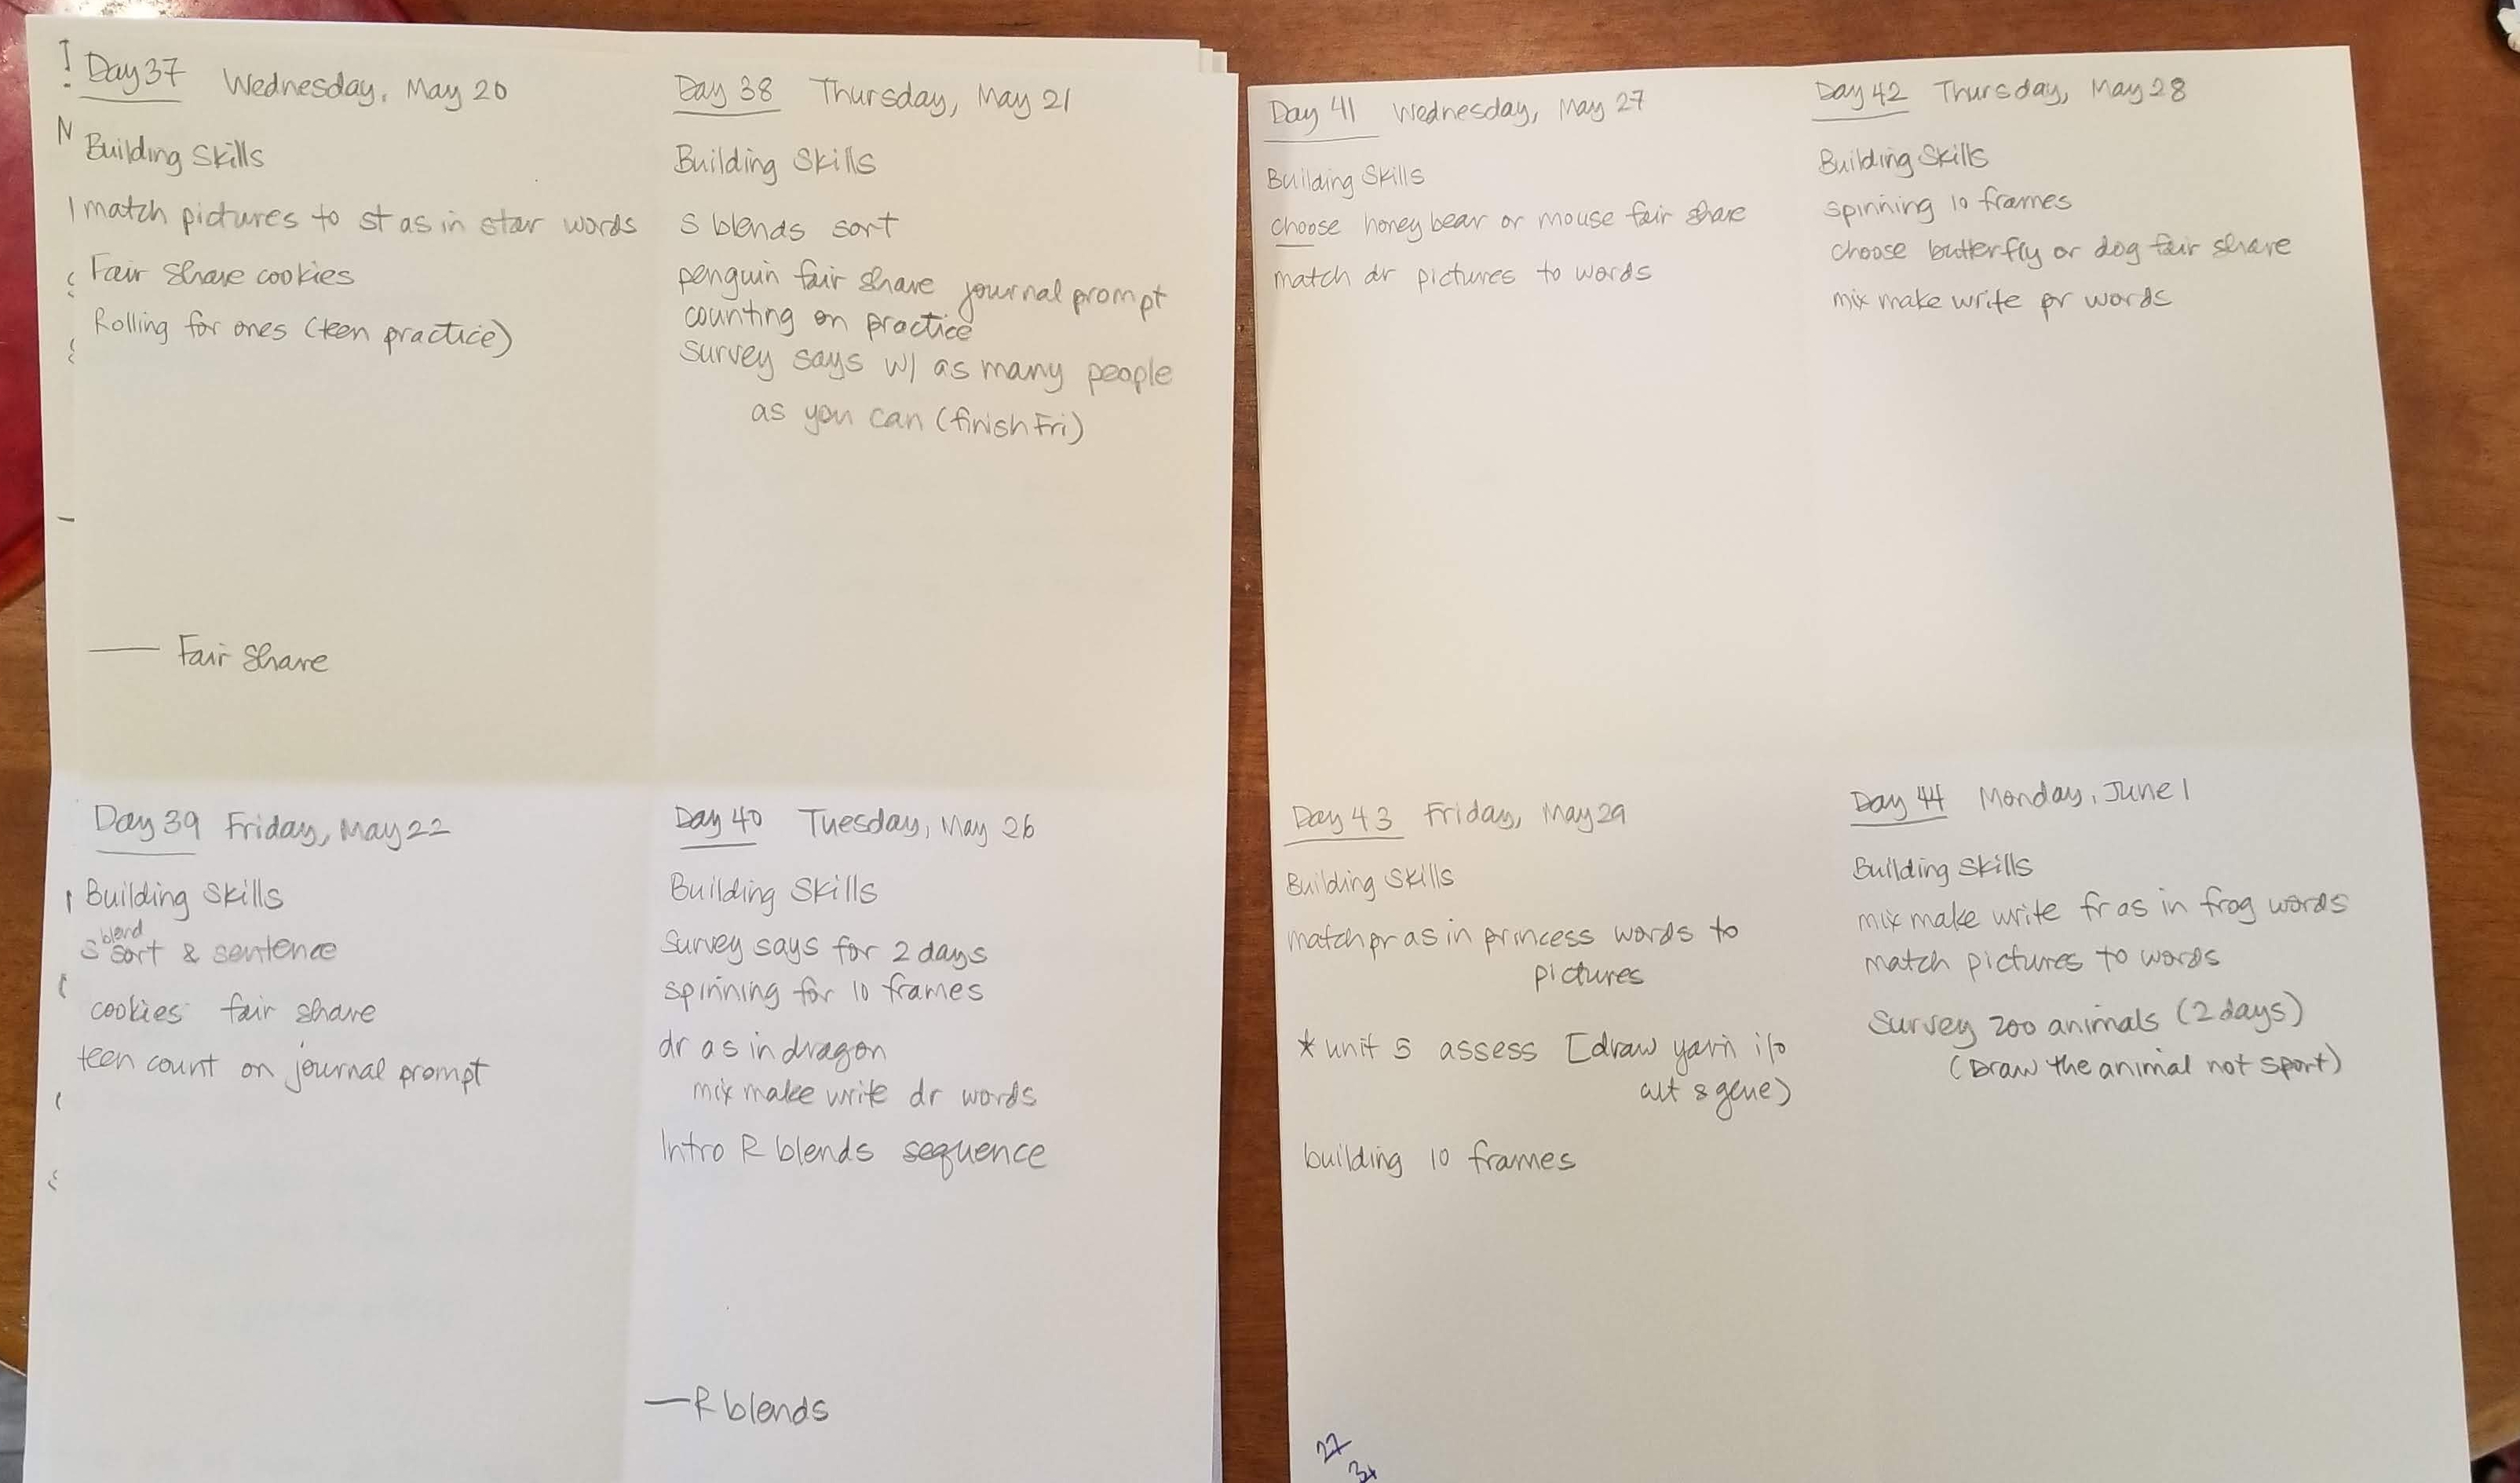 Day 37 Wednesday, May 20
Building Skills
match pictures to st as in star words
Fair Share cookies
Rolling for ones (teen practice)
— Fair Share
Day 38 Thursday, May 21
Building Skills
S blends sort
penguin fair share journal prompt
counting on practice
survey says w/ as many people
as you can (finish Fri)
Day 39 Friday, May 22
Building Skills
s blend sort & sentence
cookies fair share
teen count on journal prompt
Day 40 Tuesday, May 26
Building Skills
Survey says for 2 days
spinning for 10 frames
dr as in dragon
mix make write dr words
Intro R blends sequence
— R blends
Day 41 Wednesday, May 27
Building Skills
choose honey bear or mouse fair share
match dr pictures to words
Day 42 Thursday, May 28
Building Skills
spinning 10 frames
choose butterfly or dog fair share
mix make write pr words
Day 43 Friday, May 29
Building Skills
match pr as in princess words to
pictures
* unit 5 assess [draw yarn i/o
cut & glue)
building 10 frames
27
Day 44 Monday, June 1
Building Skills
mix make write fr as in frog words
match pictures to words
Survey zoo animals (2 days)
(Draw the animal not sport)